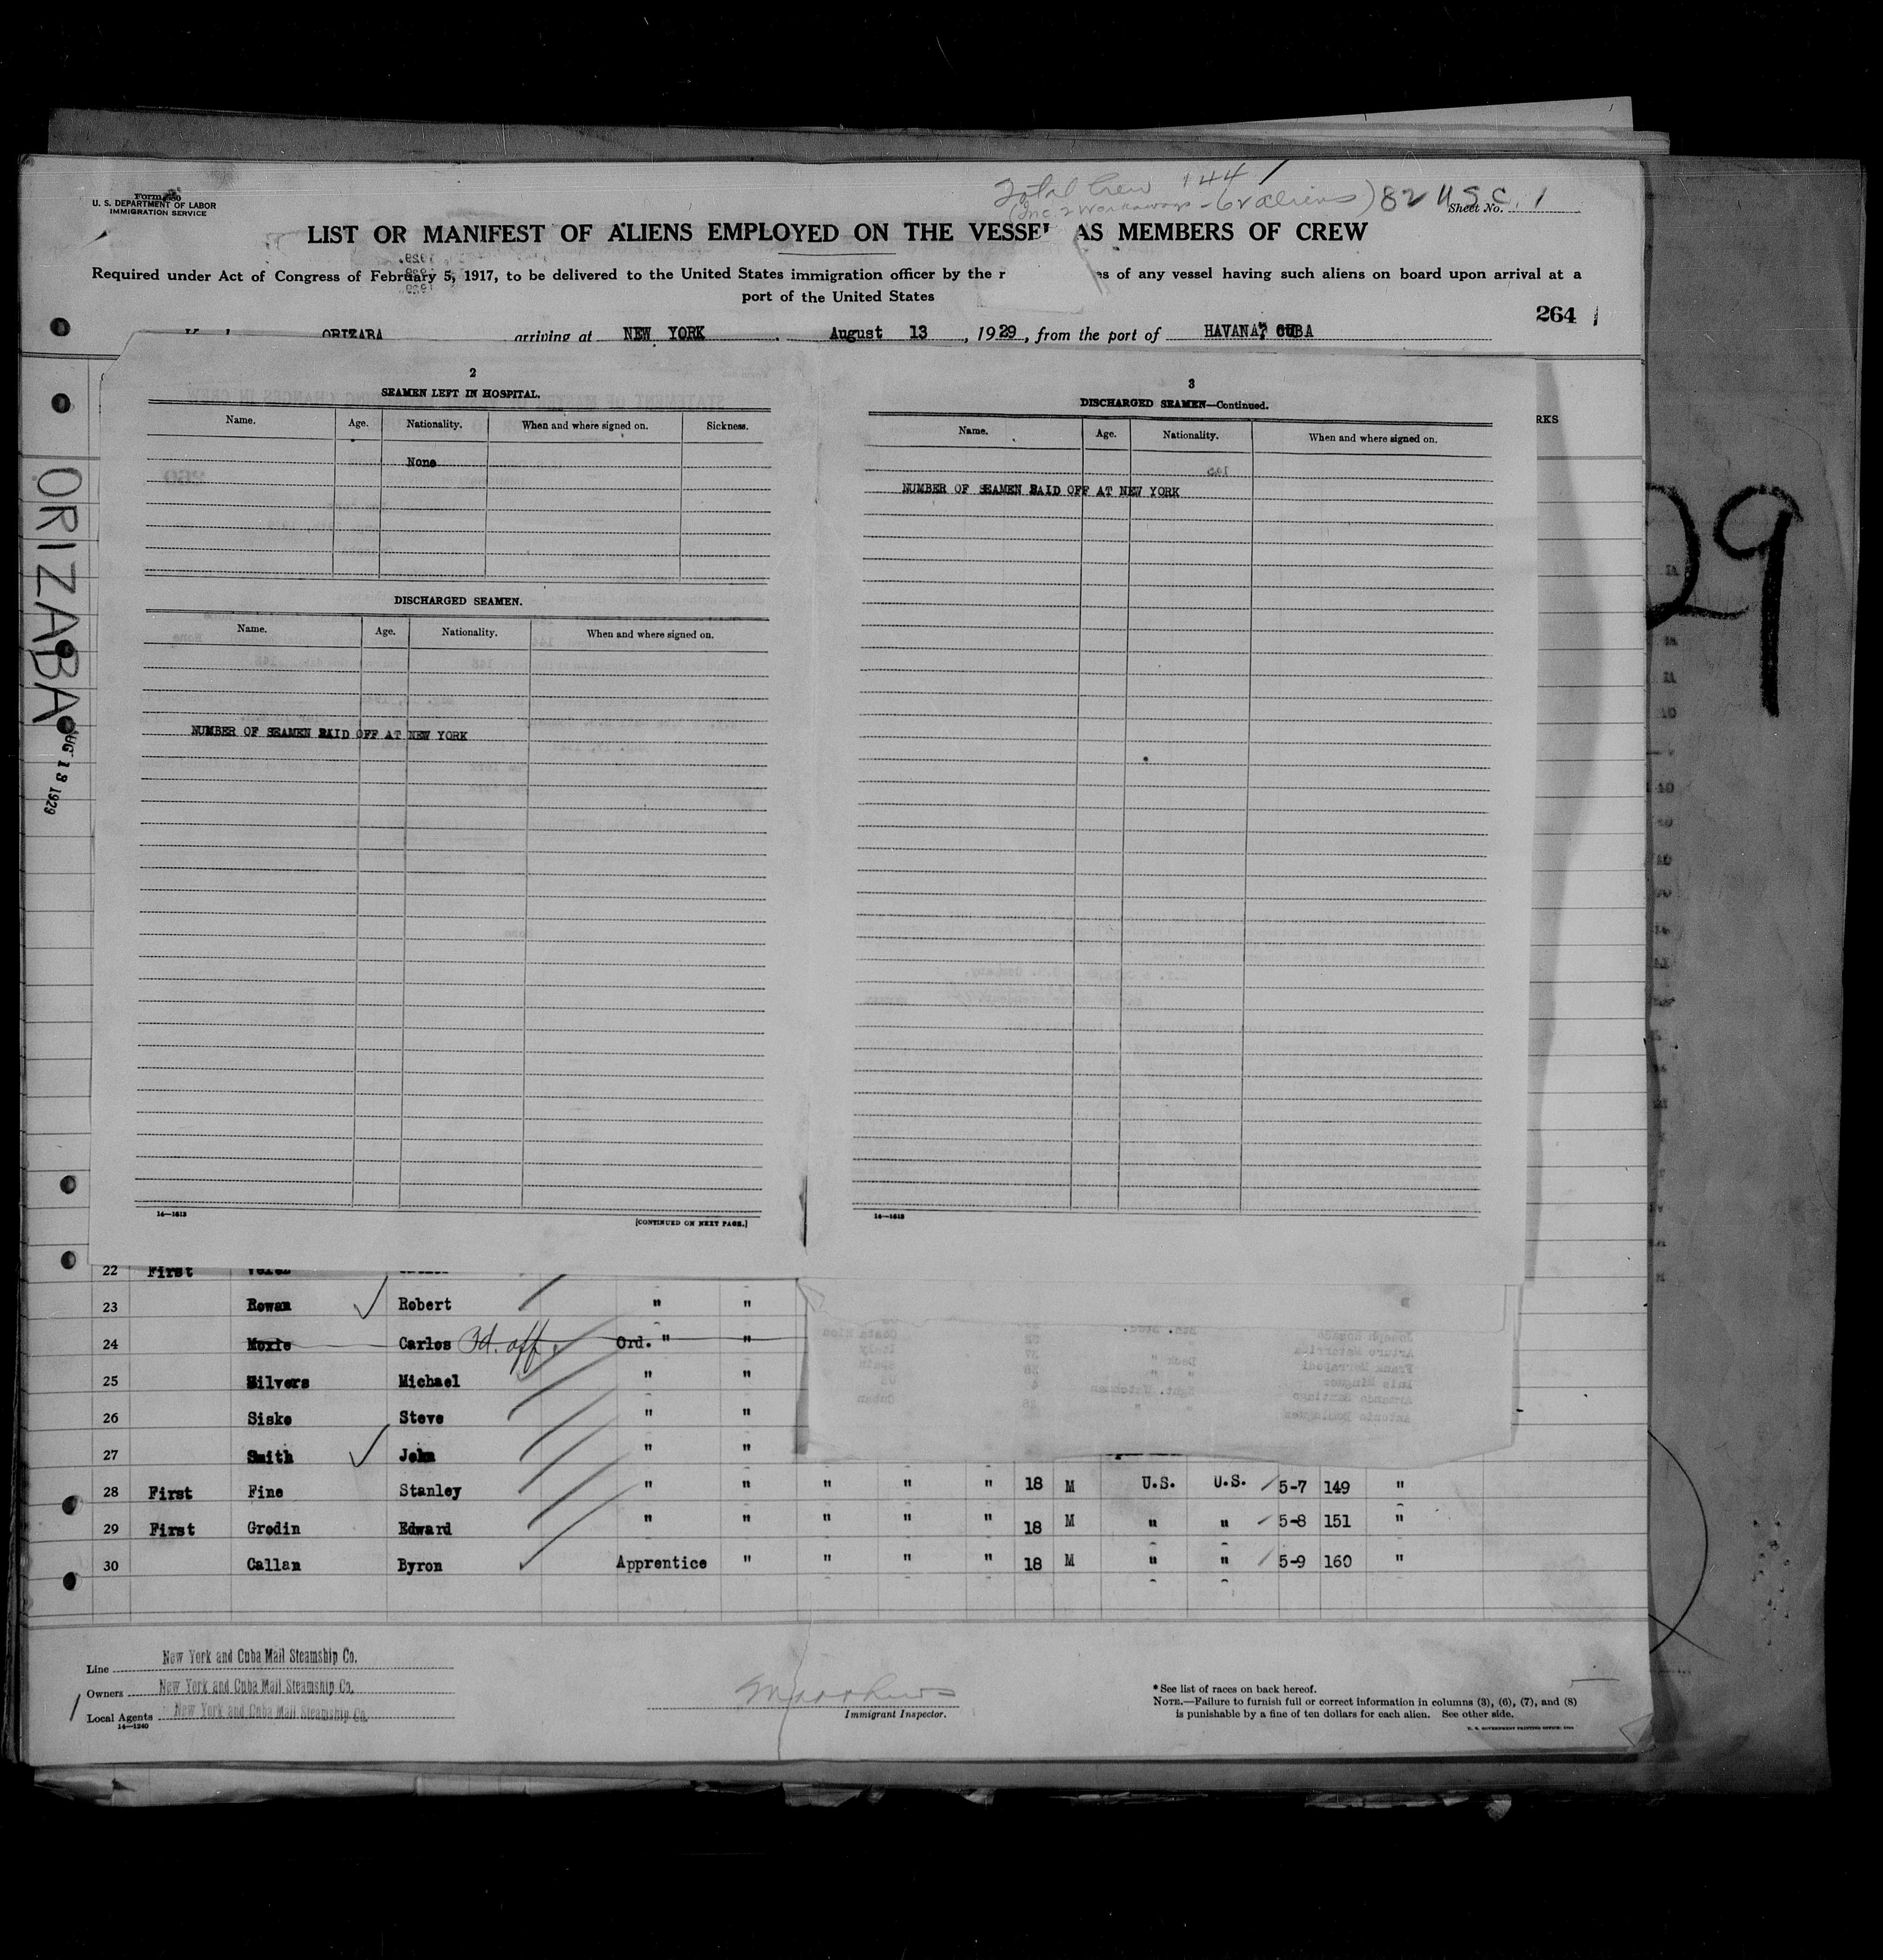 Total Crew 144
(Inc. 2 Workaways - 62 aliens) 82 U.S.C.
Form 680
U. S. DEPARTMENT OF LABOR
IMMIGRATION SERVICE
Sheet No. 1
LIST OR MANIFEST OF ALIENS EMPLOYED ON THE VESSEL AS MEMBERS OF CREW
Required under Act of Congress of February 5, 1917, to be delivered to the United States immigration officer by the r es of any vessel having such aliens on board upon arrival at a
port of the United States
264
ORIZABA arriving at NEW YORK August 13, 1929, from the port of HAVANA, CUBA
RKS
ORIZABA
AUG 13 1929
29
2
SEAMEN LEFT IN HOSPITAL.
Name. Age. Nationality. When and where signed on. Sickness.
None
DISCHARGED SEAMEN.
Name. Age. Nationality. When and where signed on.
NUMBER OF SEAMEN PAID OFF AT NEW YORK
14—1613
[CONTINUED ON NEXT PAGE.]
3
DISCHARGED SEAMEN—Continued.
Name. Age. Nationality. When and where signed on.
NUMBER OF SEAMEN PAID OFF AT NEW YORK
14—1613
22 First
23 Rowan Robert " "
24 Moxie Carlos 3d. off. Ord. " "
25 Silvers Michael " "
26 Siske Steve " "
27 Smith John " "
28 First Fine Stanley " " " " " 18 M U.S. U.S. 5-7 149 "
29 First Grodin Edward " " " " " 18 M " " 5-8 151 "
30 Callan Byron Apprentice " " " " 18 M " " 5-9 160 "
Line New York and Cuba Mail Steamship Co.
Owners New York and Cuba Mail Steamship Co.
Local Agents New York and Cuba Mail Steamship Co.
14—1240
Immigrant Inspector.
* See list of races on back hereof.
NOTE.—Failure to furnish full or correct information in columns (3), (6), (7), and (8)
is punishable by a fine of ten dollars for each alien. See other side.